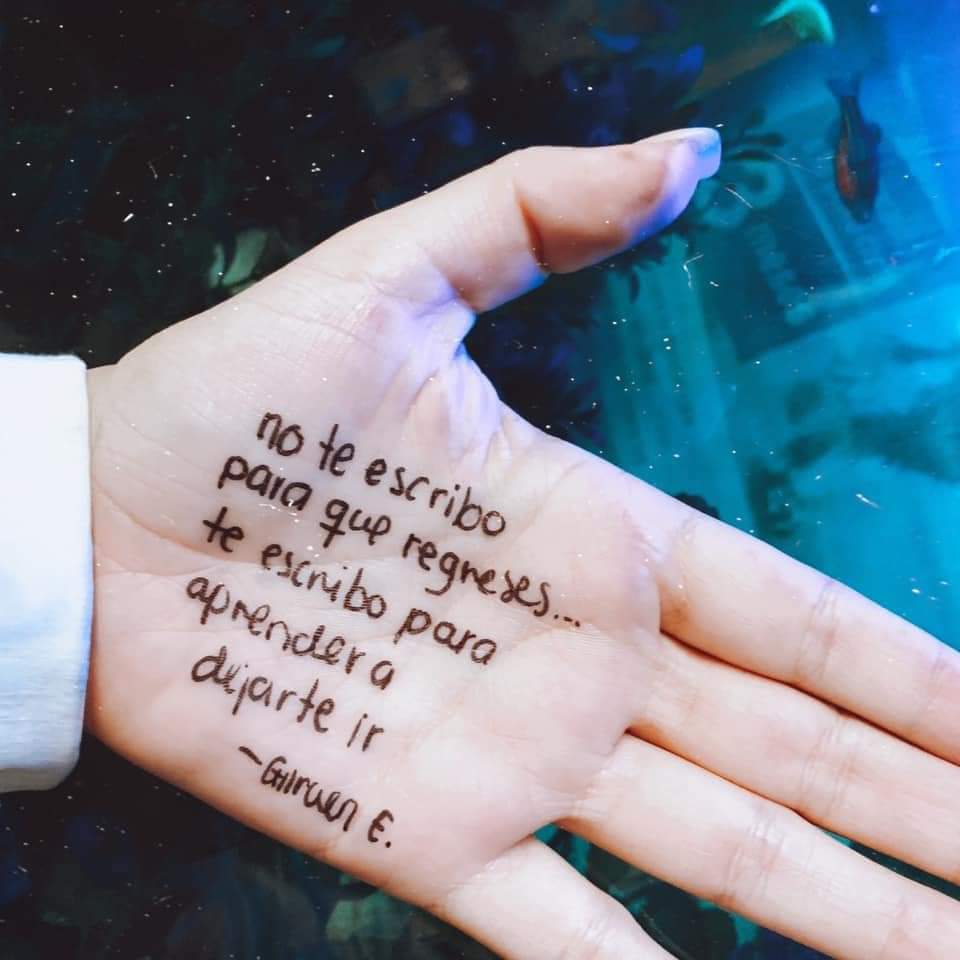 no te escribo
para que regreses...
te escribo para
aprender a
dejarte ir
E.